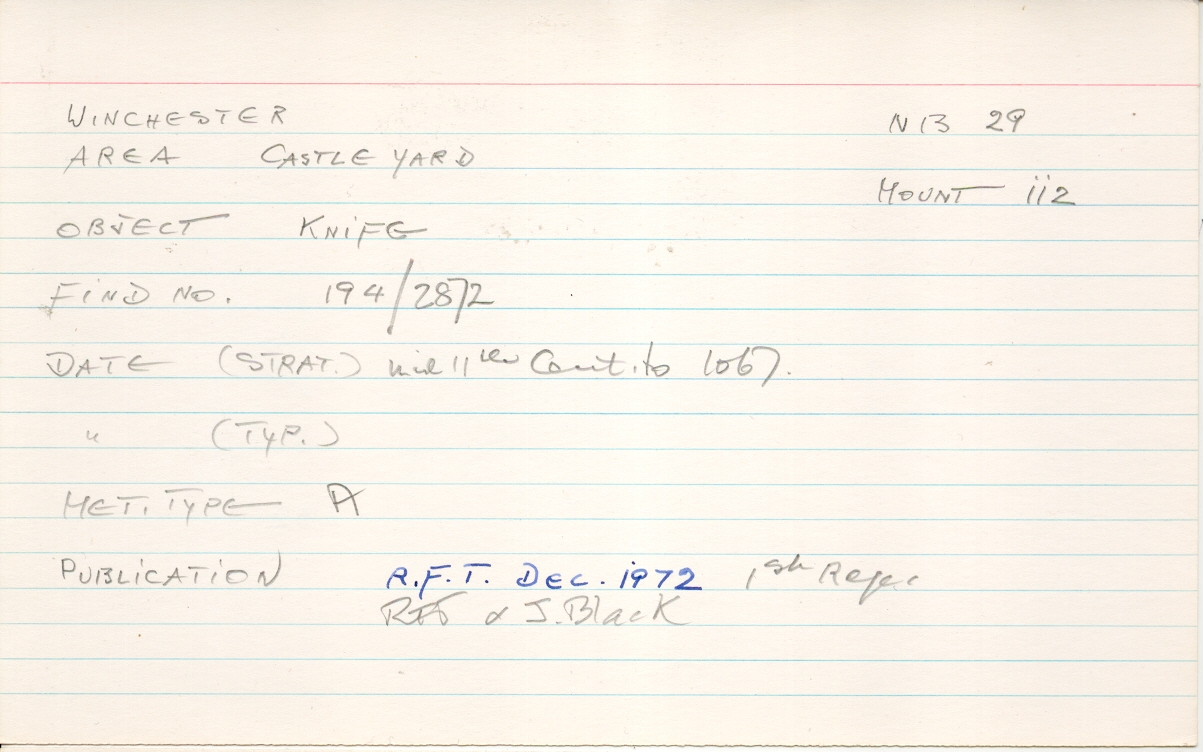 WINCHESTER
NB 29
AREA CASTLE YARD
MOUNT ii2
OBJECT KNiFE
FiND NO. 194/2872
DATE (STRAT.) mid 11th Cent. to 1067.
" (TYP.)
MET. TYPE A
PUBLiCATiON R.F.T. DEC. 1972 1st
RFT & J. Black